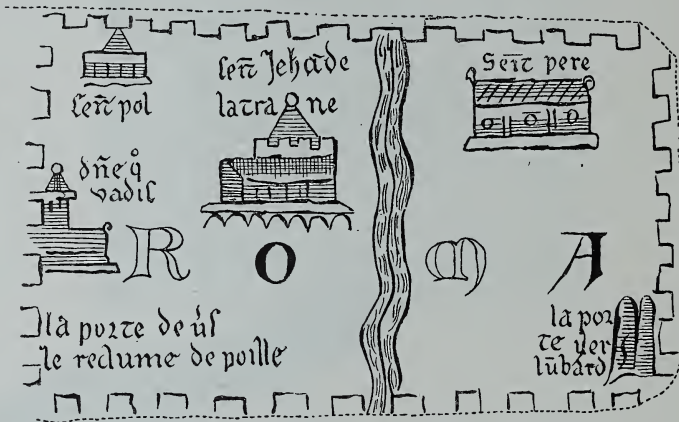 seīt pol
seīt Jehāde
latrane
Seīt pere
dn̄e qͦ
vadis
R O M A
la porte de u's
le reaume de poille
la por
te uer
lūbard